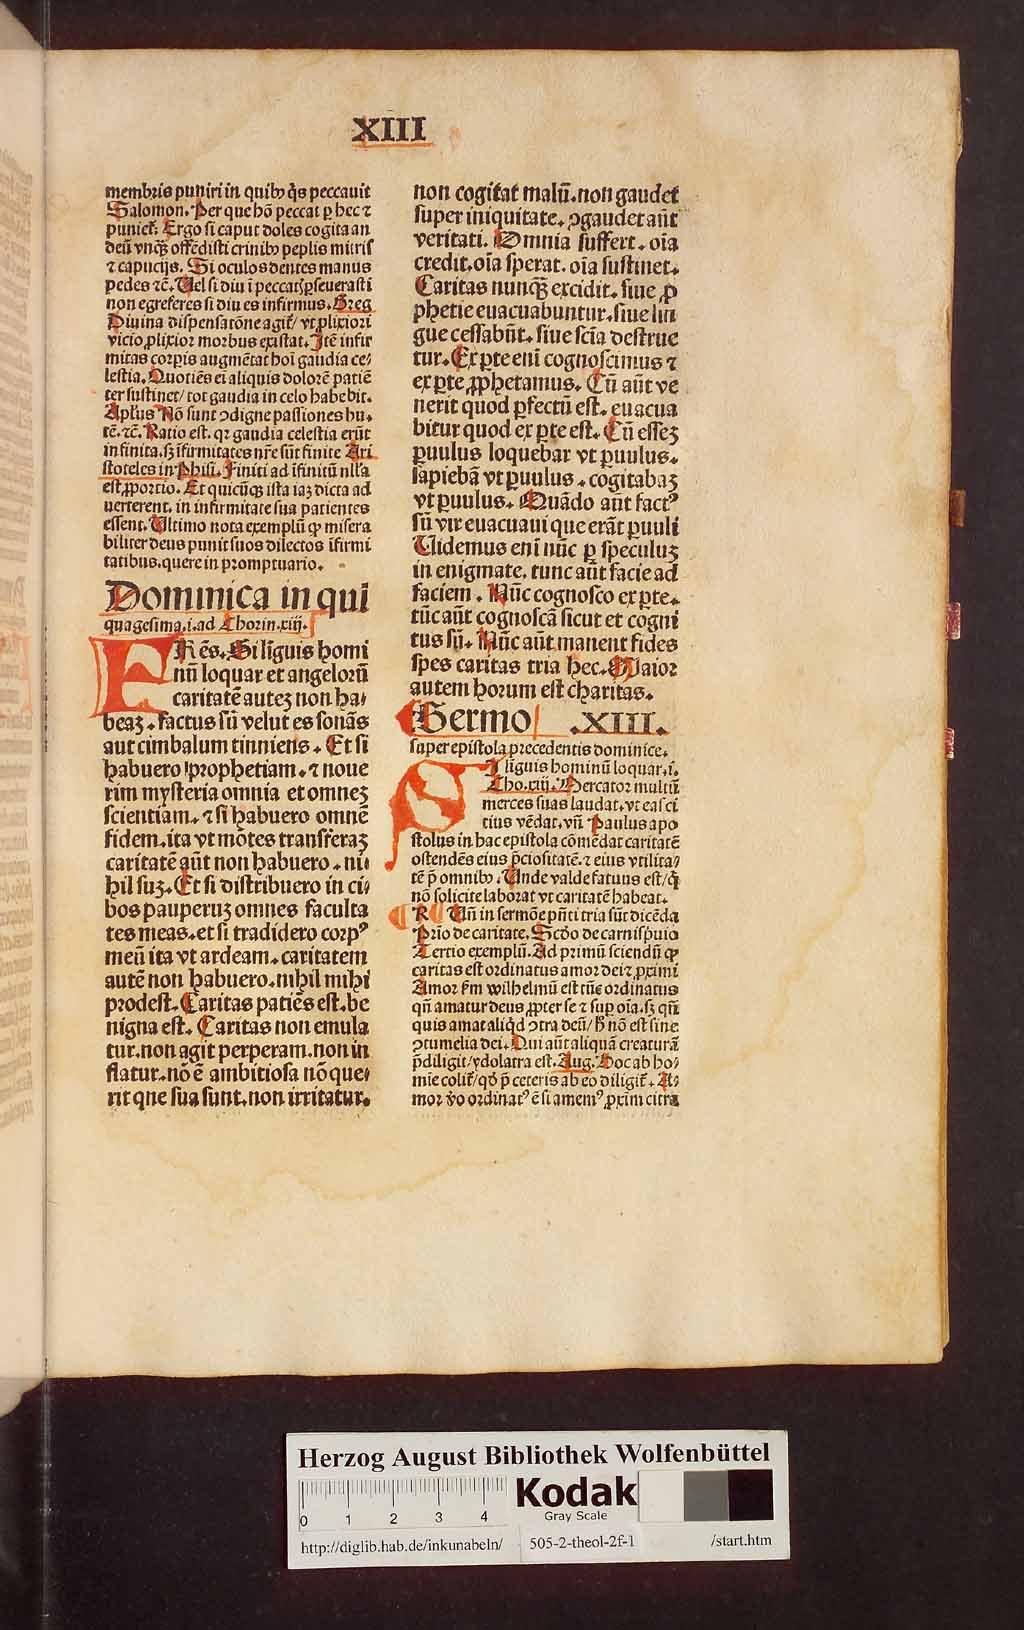 XIII
membris puniri in quibꝰ q̄s peccauit
Salomon. Per que hō peccat ꝑ hec ⁊
puniet᷑. Ergo si caput doles cogita an
deū vnqꝫ offēdisti crinibꝰ peplis mitris
⁊ capucijs. Si oculos dentes manus
pedes ⁊c̄. Uel si diu ī peccat᷑ ꝑseuerasti
non egreferes si diu es infirmus. Greg
Diuina dispensatōne agit᷑/ vt ꝓlixiori
vicio ꝓlixior morbus existat. Itē infir
mitas corꝑis augmētat hoī gaudia ce⸗
lestia. Quotiēs ei aliquis dolorē patiē
ter sustinet/ tot gaudia in celo habebit.
Apl'us Nō sunt ↄdigne passiones hu⸗
tē. ⁊c̄. Ratio est. qꝛ gaudia celestia erūt
infinita. sꝫ īfirmitates nr̄e sūt finite Ari
stoteles in Phisī. Finiti ad īfinitū nlla
est ꝓportio. Et quicūqꝫ ista iaꝫ dicta ad
uerterent. in infirmitate sua patientes
essent. Ultimo nota exemplū ꝙ misera
biliter deus punit suos dilectos īfirmi
tatibus. quere in promptuario.
Dominica in qui
quagesima .i. ad Chorin. xiij.
FRēs. Si līguis homi
nū loquar et angelorū
caritatē auteꝫ non ha⸗
beaꝫ. factus sū velut es sonās
aut cimbalum tinniens. Et si
habuero prophetiam. ⁊ noue
rim mysteria omnia et omneꝫ
scientiam. ⁊ si habuero omnē
fidem. ita vt mōtes transferaꝫ
caritatē aūt non habuero. ni⸗
hil suꝫ. Et si distribuero in ci⸗
bos pauperuꝫ omnes faculta
tes meas. et si tradidero corpꝰ
meū ita vt ardeam. caritatem
autē non habuero. nihil mihi
prodest. Caritas patiēs est. be
nigna est. Caritas non emula
tur. non agit perperam. non in
flatur. nō ē ambitiosa nō que⸗
rit que sua sunt. non irritatur.
non cogitat malū. non gaudet
super iniquitate. ↄgaudet aūt
veritati. Omnia suffert. oīa
credit. oīa sperat. oīa sustinet.
Caritas nunqꝫ excidit. siue ꝓ
phetie euacuabuntur. siue lin
gue cessabūt. siue scīa destrue
tur. Ex ꝑte enī cognoscimus ⁊
ex ꝑte ꝓphetamus. Cū aūt ve
nerit quod ꝑfectū est. euacua
bitur quod ex ꝑte est. Cū esseꝫ
ꝑuulus loquebar vt ꝑuulus.
sapiebā vt ꝑuulus. cogitabaꝫ
vt ꝑuulus. Quādo aūt factꝰ
sū vir euacuaui que erāt ꝑuuli
Uidemus enī nūc ꝑ speculuꝫ
in enigmate. tunc aūt facie ad
faciem. Nūc cognosco ex ꝑte.
tūc aūt cognoscā sicut et cogni
tus sū. Nūc aūt manent fides
spes caritas tria hec. Maior
autem horum est charitas.
Sermo .XIII.
super epistola precedentis dominice.
SI līguis hominū loquar. i.
Cho. xiij. Mercator multū
merces suas laudat. vt eas ci
tius vēdat. vn̄ Paulus apo
stolus in hac epistola cōmēdat caritatē
ostendēs eius p̄ciositatē. ⁊ eius vtilita⸗
tē p̄ omnibꝰ. Unde valde fatuus est/ q̄
nō solicite laborat vt caritatē habeat.
R Un̄ in sermōe pn̄ti tria sūt dicēda
Prīo de caritate. Scd̄o de carnispuio
Tertio exemplū. Ad primū sciendū ꝙ
caritas est ordinatus amor dei ⁊ ꝓximi
Amor ẜm wilhelmū est tūc ordinatus
qn̄ amatur deus ꝓpter se ⁊ suꝑ oīa. sꝫ qn̄
quis amat aliqd ↄtra deū/ h̄ nō est sine
ↄtumelia dei. Qui aūt aliquā creaturā
p̄diligit/ ydolatra est. Aug. Hoc ab ho⸗
mie colit᷑/ qd̄ p̄ ceteris ab eo diligit᷑. A⸗
mor v̄o ordinatꝰ ē si amemꝰ ꝓximū citra
Herzog August Bibliothek Wolfenbüttel
0 1 2 3 4
Kodak
Gray Scale
http://diglib.hab.de/inkunabeln/ 505-2-theol-2f-1 /start.htm